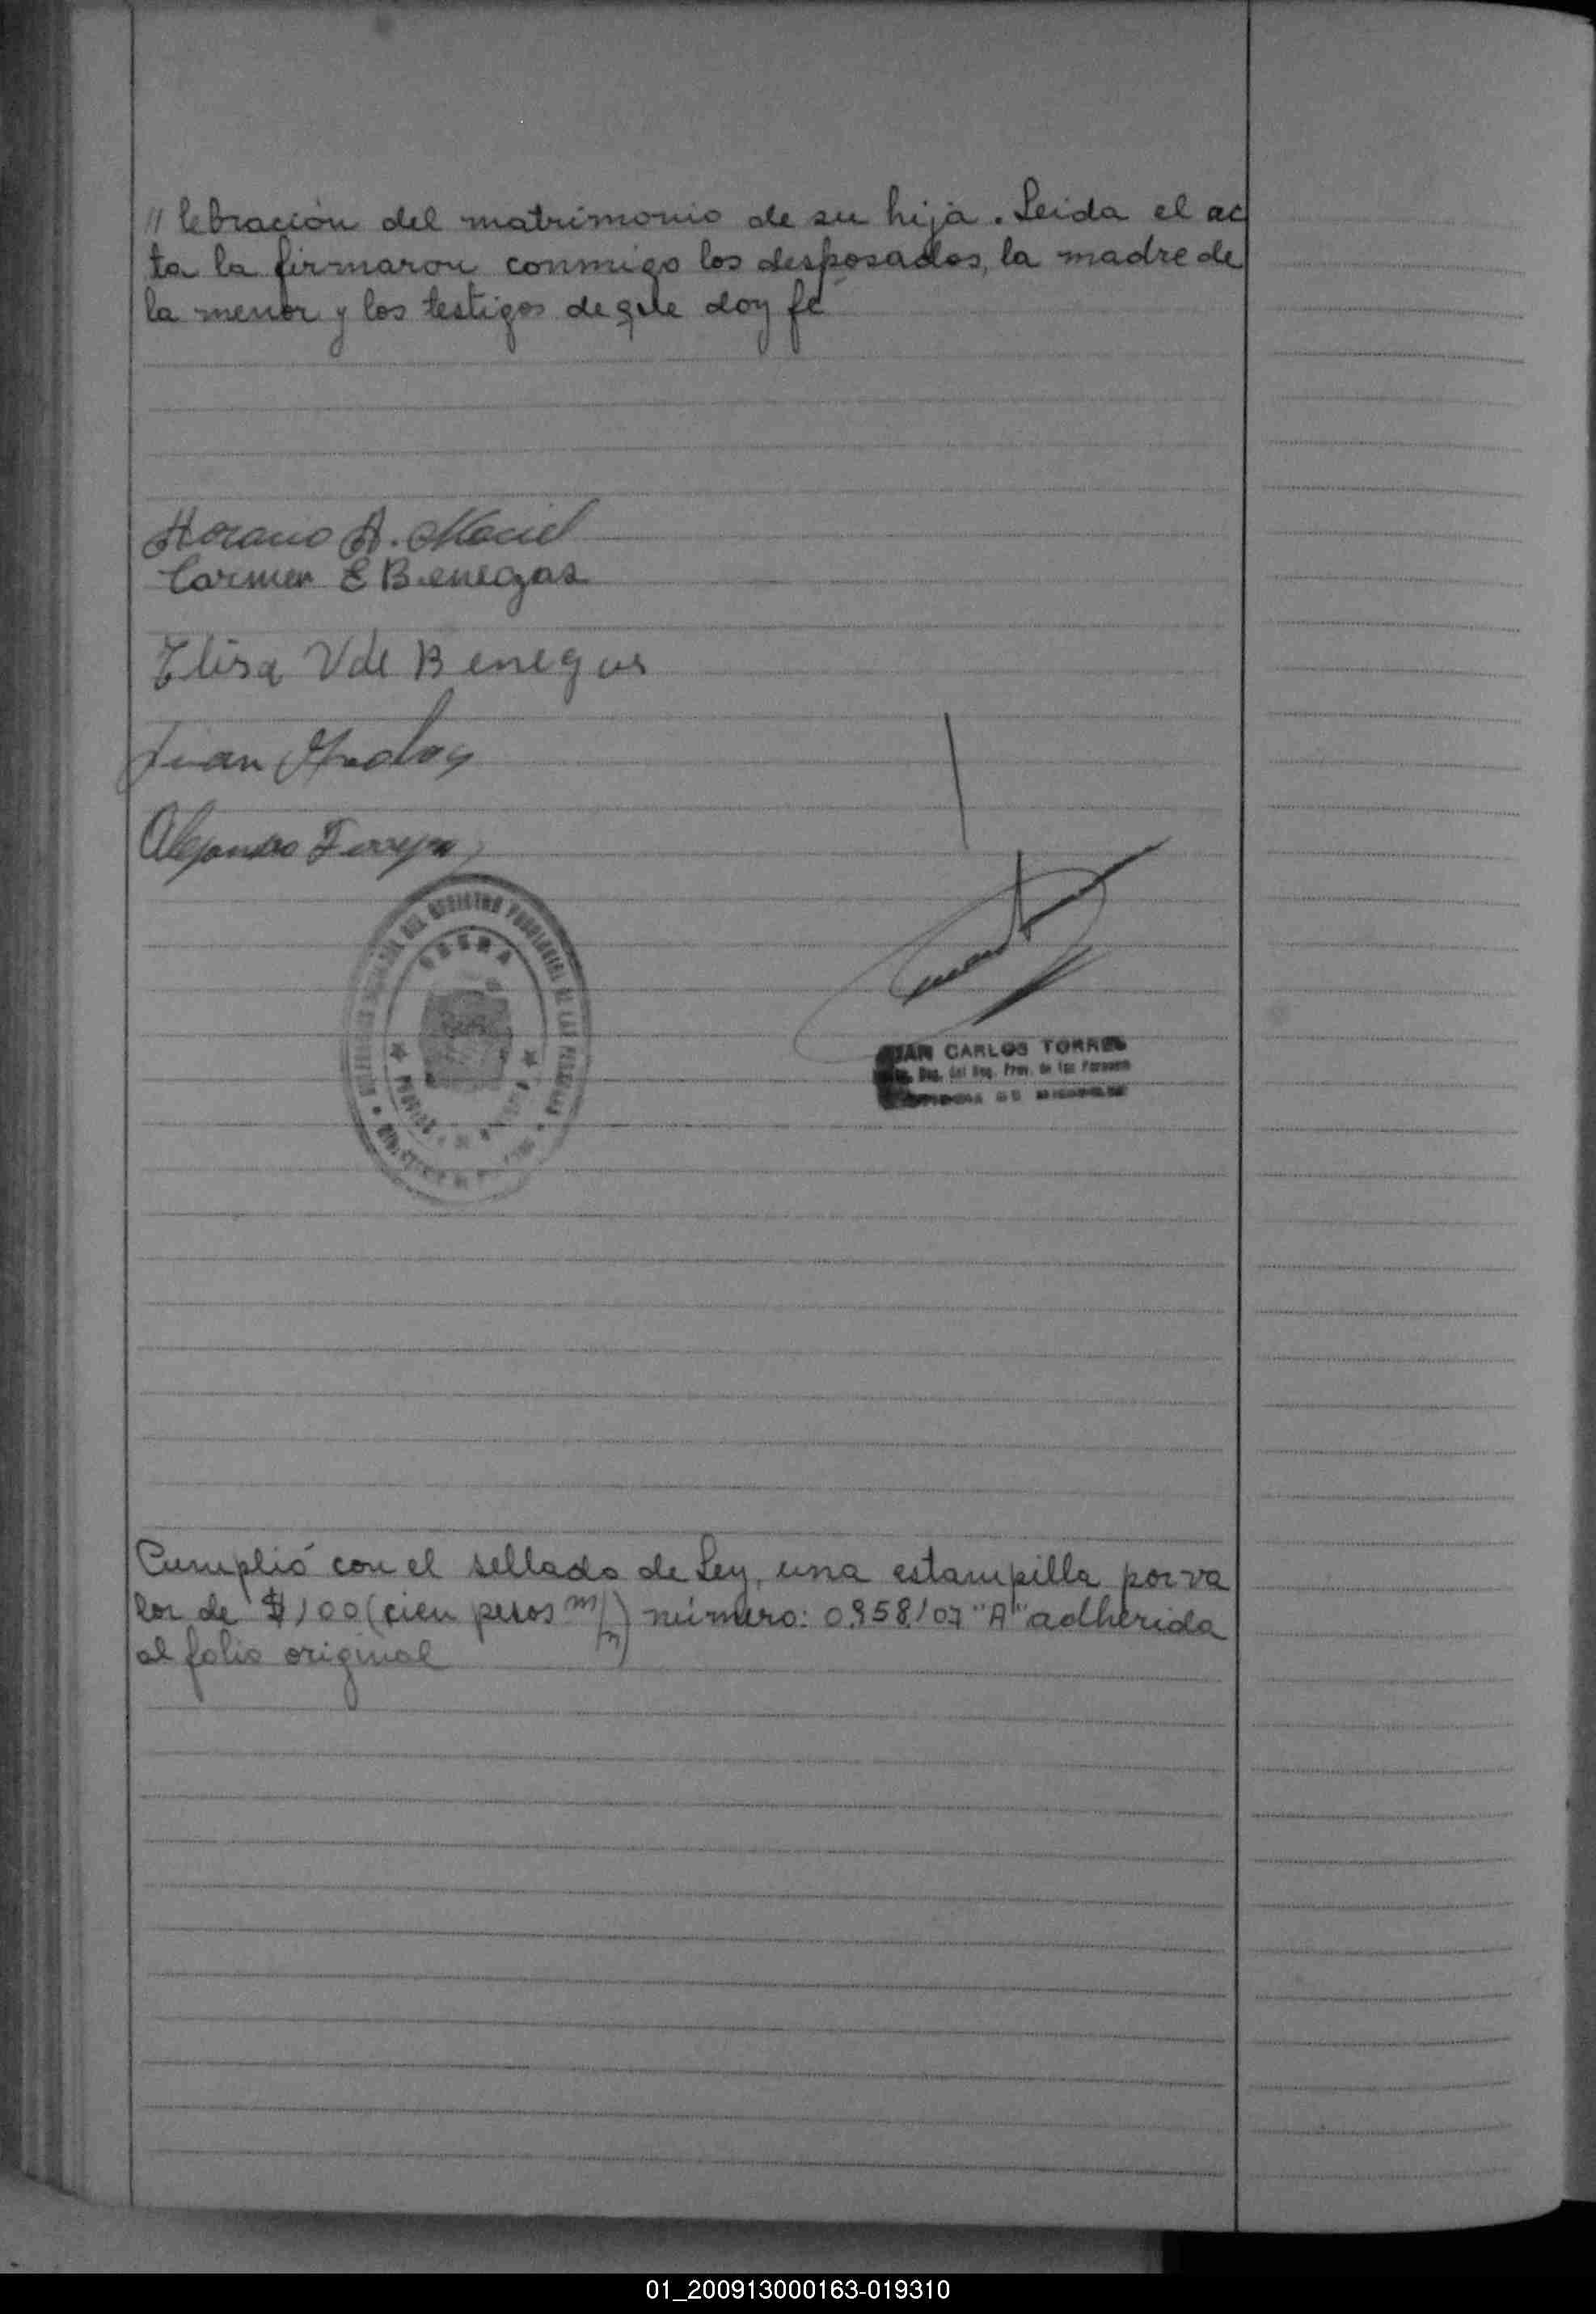 // lebración del matrimonio de su hija. Leida el ac
ta la firmaron conmigo los desposados, la madre de
la menor y los testigos de que doy fé
Horacio A. Maciel
Carmen E Benegas
Elisa V de Benegas
Juan
Alejandro Ferreyra
REGISTRO PROVINCIAL DE LAS PERSONAS
OBERA
JUAN CARLOS TORRES
del Reg. Prov. de las Personas
Cumplió con el sellado de Ley, una estampilla por va
lor de $100 (cien pesos m/n) número: 0.958.107 "A" adherida
al folio original
01_200913000163-019310